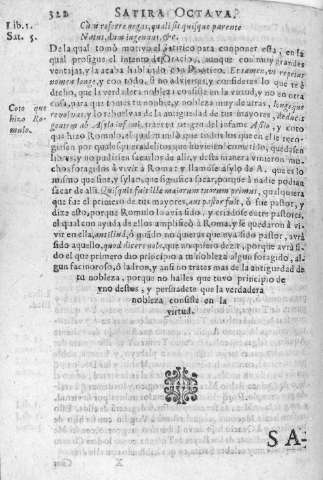 322 SATIRA OCTAVA.
Lib. 1.
Sat. 5.
Cũm referre negas, quali sit quisque parente
Natus, dum ingenuus, &c.
De la qual tomò motivo el satirico para componer esta, en la
qual prosigue el intento de Oracio, aunque con muy grandes
ventajas, y la acaba hablando con Pontico. Et tamen, ut repetas
nomen longe, y con todo, si no advierges, y consideras lo que te è
dicho, que la verdadera nobleza consiste en la virtud, y no en otra
cosa, para que tomes tu nobleza muy de atras, longeque
revolvas, y los rebuelvas de la antiguedad de tus mayores, deduc
gentem ab Asylo infami, traeras tu origen del infame Asilo, y como
Coto que
hizo Ro-
mulo.
que hizo Romulo, el qual mandò que todos los que en èl se reco-
gian por qualesquiera delitos que huviesen cometido, quedasen
libres, y no pudiesen sacarlos de alli, y desta manera vinieron mu-
chos foragidos à vivir à Roma: y llamòse asylo de A. que es lo
mismo que sine, y sylao, que significa sacar, porque à nadie podian
sacar de alli. Quisquis fuit ille maiorum tuorum primus, qualquiera
que fue el primero de tus mayores, aut pastor fuit, ò fue pastor, y
dize esto, porque Romulo lo avia sido, y criadose entre pastores,
el qual con ayuda de ellos amplificò à Roma, y le quedaron à vi-
vir en ella, aut illud, ò quizàs no quieras que aya sido pastor, avrà
sido aquello, quod dicere nolo, que no quiero dezir, porque avrà si-
do el que primero dio principio à tu nobleza algun foragido, al-
gun facinoroso, ò ladron, y ansi no trates mas de la antiguedad de
tu nobleza, porque no halles que tuvo principio de
uno destos, y persuadete que la verdadera
nobleza consiste en la
virtud.
SA-